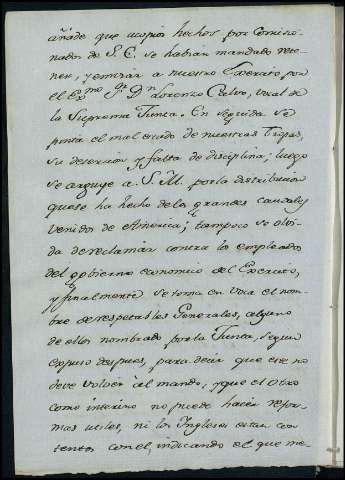 añade que acopios hechos por Comisio-
nados de S. E. se habian mandado rete-
ner, y enviar a nuestro Exercito por
el Exmo. Sr. Dn. Lorenzo Calvo, vocal de
la Suprema Junta. En seguida se
pinta el mal estado de nuestras Tropas,
su desercion y falta de disciplina; luego
se arguye a S. M. por la distribucion
que se ha hecho de los grandes caudales
venidos de America; tampoco se olvi-
da de reclamar contra los empleados
del gobierno economico del Exercito,
y finalmente se toma en voca el nom-
bre de respetables Generales, alguno
de ellos nombrado, por la Junta, segun
expuso despues, para decir que este no
deve volver al mando, y que el otro
como interino no puede hacer refor-
mas utiles, ni los Ingleses estan con-
tentos con el, indicando el que me-